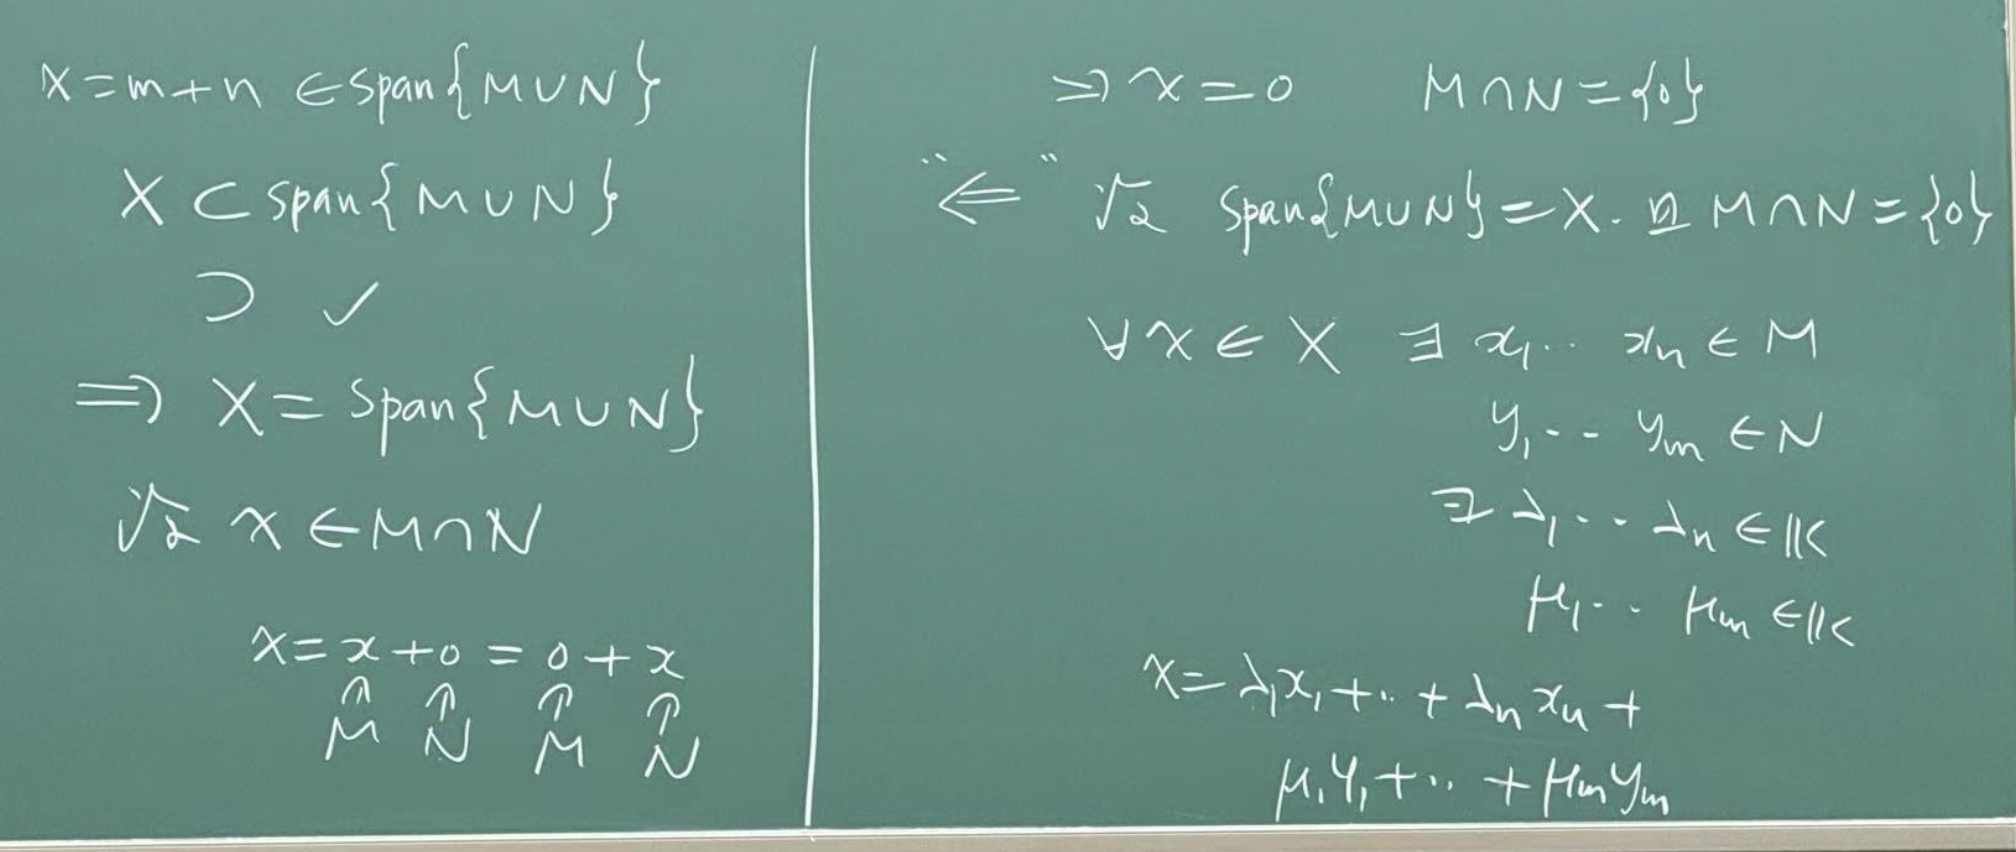 x = m + n ∈ span{M∪N}
X ⊂ span{M∪N}
⊃ ✓
⇒ X = span{M∪N}
设 x ∈ M∩N
x = x + 0 = 0 + x
∈ ∈ ∈ ∈
M N M N
⇒ x = 0 M∩N = {0}
"⇐" 设 span{M∪N} = X. 且 M∩N = {0}
∀x ∈ X ∃ x₁.. xₙ ∈ M
y₁-- yₘ ∈ N
∃ λ₁-- λₙ ∈ 𝕂
μ₁-- μₘ ∈ 𝕂
x = λ₁x₁ + .. + λₙxₙ +
μ₁y₁ + .. + μₘyₘ